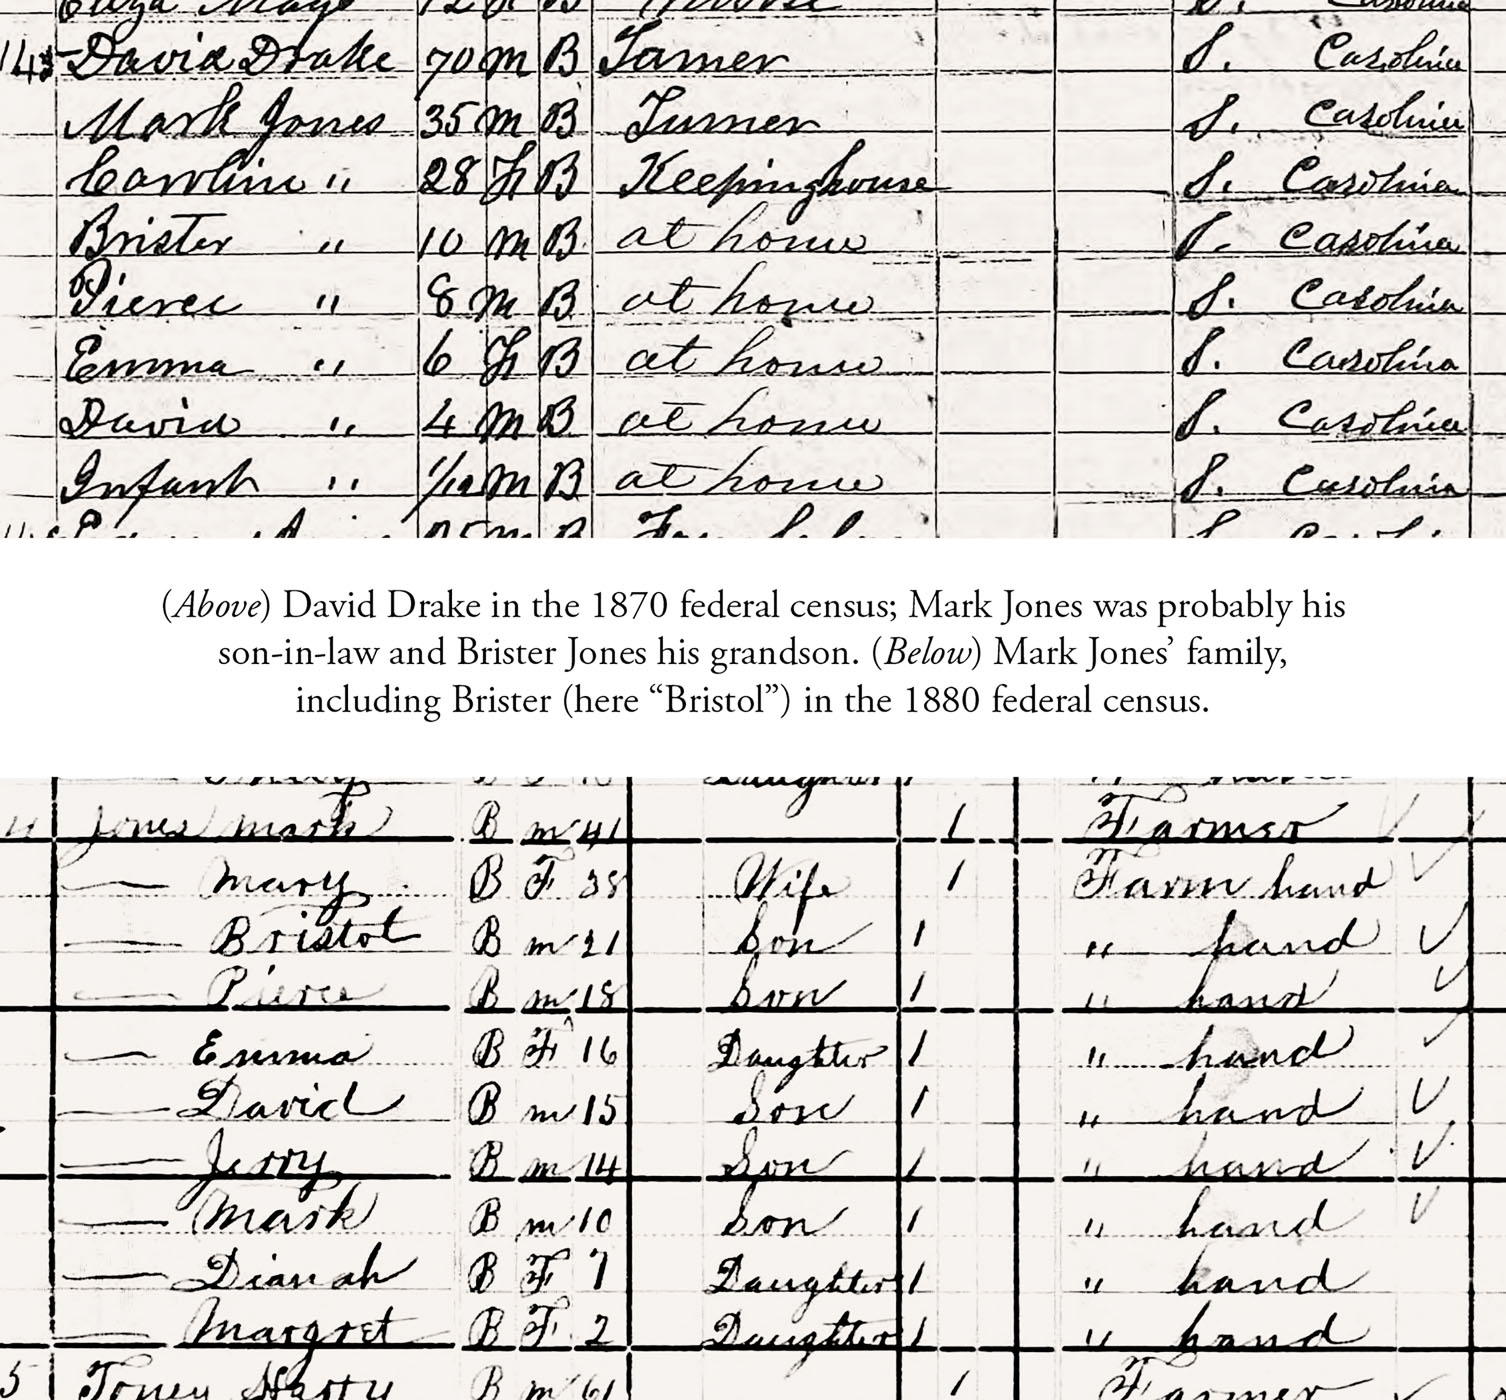 Eliza Mays 12 F B S. Carolina
143 David Drake 70 M B Turner S. Carolina
Mark Jones 35 M B Turner S. Carolina
Caroline " 28 F B Keeping house S. Carolina
Brister " 10 M B at home S. Carolina
Pierce " 8 M B at home S. Carolina
Emma " 6 F B at home S. Carolina
David " 4 M B at home S. Carolina
Infant " 1/12 M B at home S. Carolina
(Above) David Drake in the 1870 federal census; Mark Jones was probably his
son-in-law and Brister Jones his grandson. (Below) Mark Jones’ family,
including Brister (here “Bristol”) in the 1880 federal census.
Daughter 1
Jones Mark B M 41 1 Farmer
— Mary B F 38 Wife 1 Farm hand
— Bristol B M 21 Son 1 " hand
— Pierce B M 18 Son 1 " hand
— Emma B F 16 Daughter 1 " hand
— David B M 15 Son 1 " hand
— Jerry B M 14 Son 1 " hand
— Mark B M 10 Son 1 " hand
— Dianah B F 7 Daughter 1 " hand
— Margret B F 2 Daughter 1 " hand
5 Toney Harry B M 61 1 Farmer